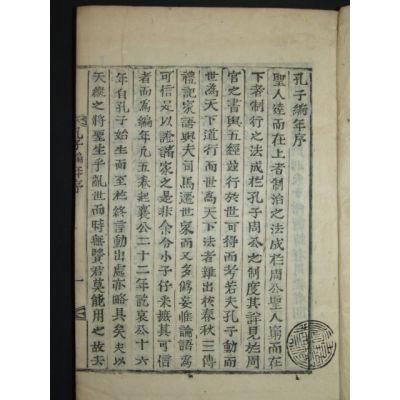 孔子編年序
聖人達而在上者制治之法成於周公聖人窮而在
下者制行之法成於孔子周公之制度其詳見於周
官之書與五經並行於世可得而考若夫孔子動而
世為天下道行而世為天下法者雖出於春秋三傳
禮記家語與夫司馬遷世家而又多偽妄惟論語為
可信是以證諸家之是非余令小子仔采摭其可信
者而為編年凡五卷起襄公二十二年訖哀公十六
年自孔子始生而至於終言動出處亦略具矣夫以
天縱之將聖生乎亂世而時無賢君莫能用之故去
孔子編年序
一